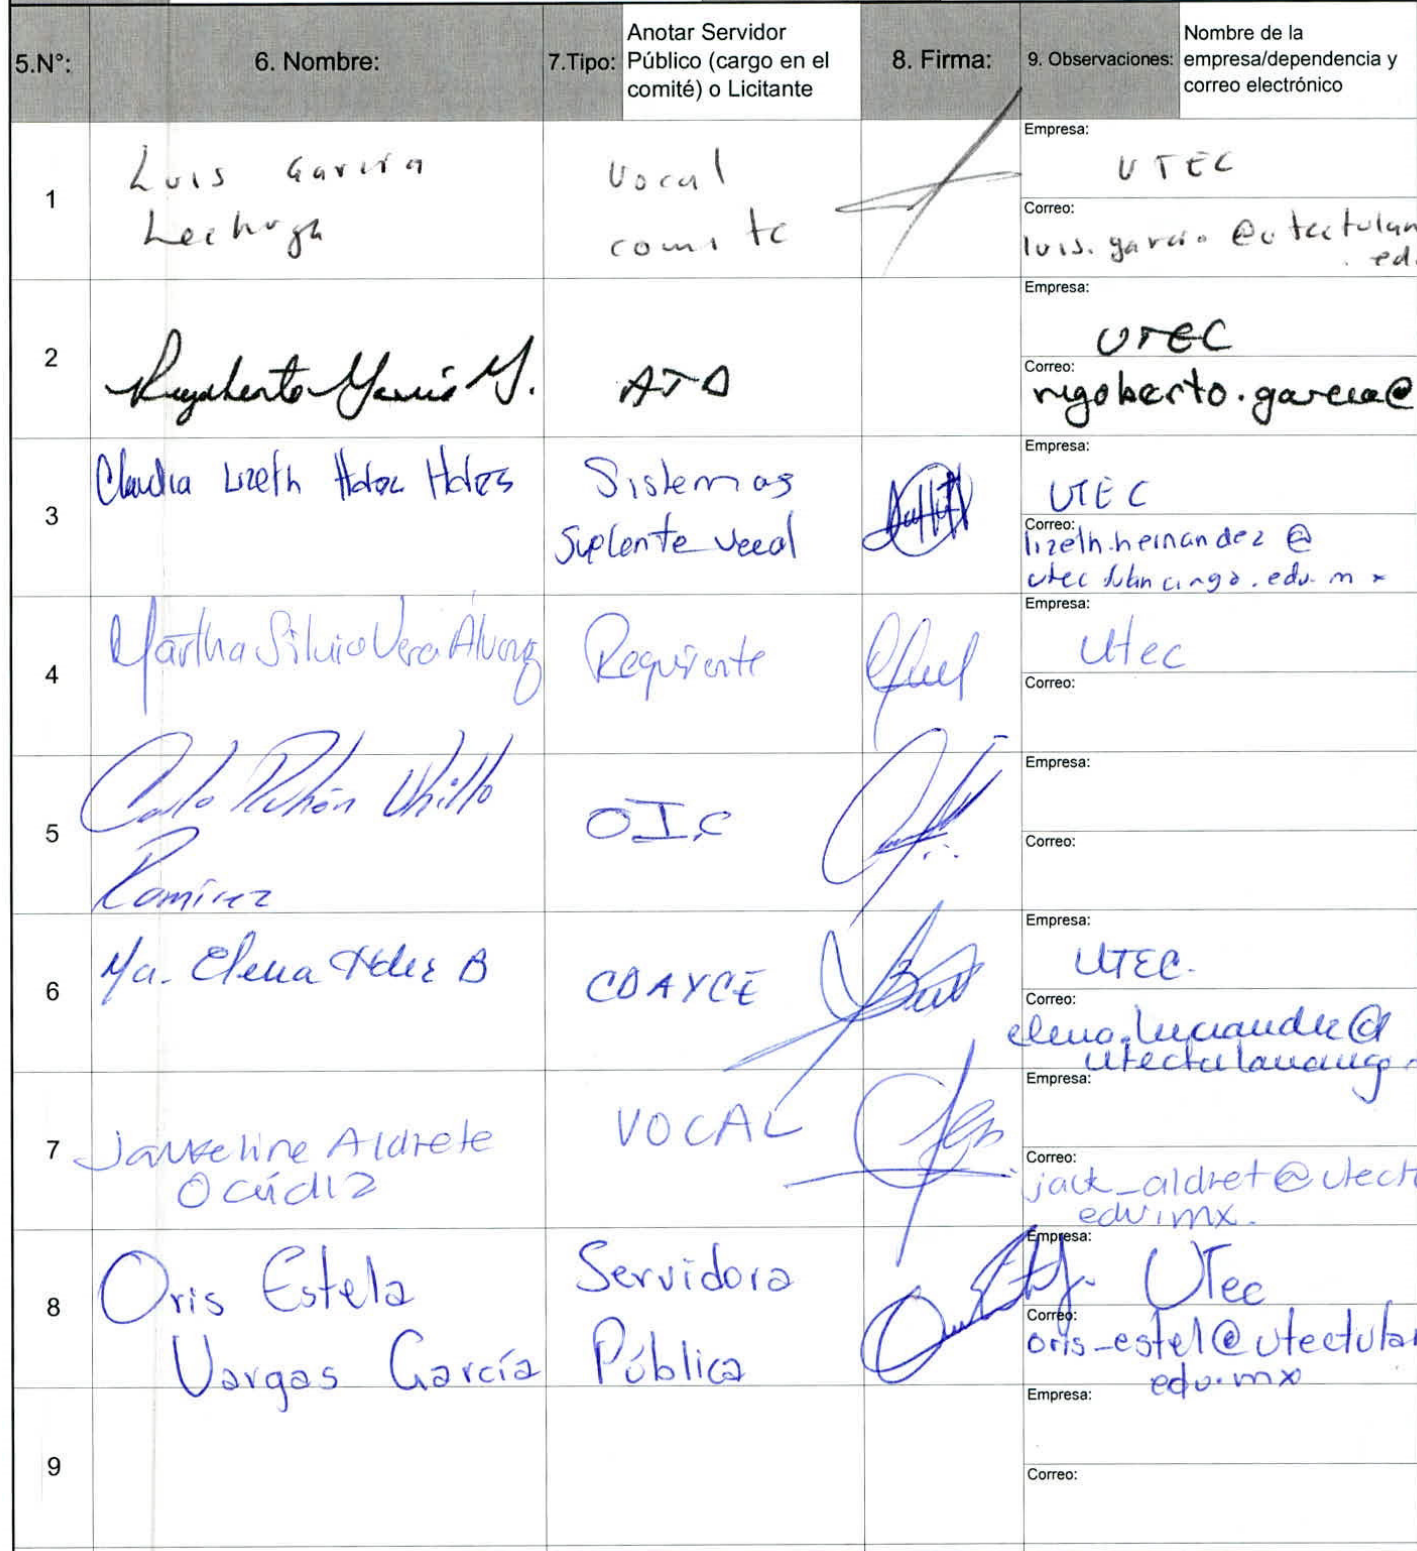 5.N°:
6. Nombre:
7.Tipo:
Anotar Servidor
Público (cargo en el
comité) o Licitante
8. Firma:
9. Observaciones:
Nombre de la
empresa/dependencia y
correo electrónico
1
Luis García
Lechuga
Vocal
comite
Empresa:
UTEC
Correo:
luis.garcia@utectulan
.ed.
2
Rigoberto García M.
Empresa:
UTEC
Correo:
rigoberto.garcia@
3
Claudia Lizeth Hdez Hdez
Sistemas
Suplente vocal
Empresa:
UTEC
Correo:
lizeth.hernandez@
utectulancingo.edu.mx
4
Martha Silvia Vera Alvarez
Requirente
Empresa:
Utec
Correo:
5
Rubén
Ramírez
OIC
Empresa:
Correo:
6
Ma. Elena Hdez B
CDAYCE
Empresa:
UTEC.
Correo:
elena.hernandez@
utectulancingo.
7
Jaqueline Aldrete
Ocádiz
VOCAL
Empresa:
Correo:
jack_aldret@utectu
edu.mx.
8
Oris Estela
Vargas García
Servidora
Pública
Empresa:
UTec
Correo:
oris-estel@utectulan
edu.mx
9
Empresa:
Correo: